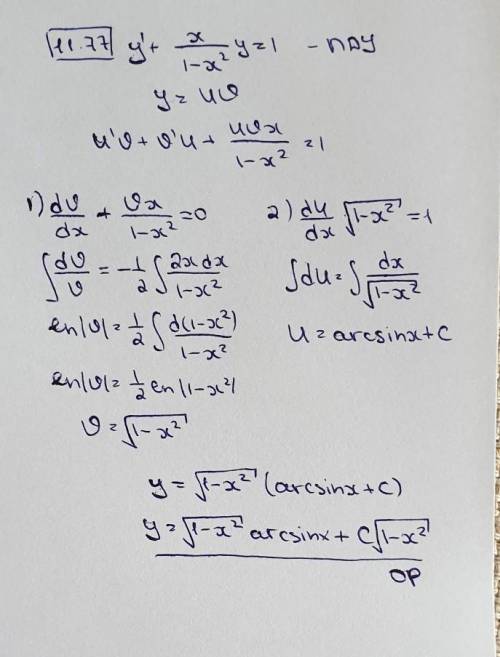 11.77 y' + x/(1-x²) y = 1 – ЛДУ
y = uϑ
u'ϑ + ϑ'u + uϑx/(1-x²) = 1
1) dϑ/dx + ϑx/(1-x²) = 0
∫ dϑ/ϑ = -1/2 ∫ 2x dx/(1-x²)
ln|ϑ| = 1/2 ∫ d(1-x²)/(1-x²)
ln|ϑ| = 1/2 ln|1-x²|
ϑ = √(1-x²)
2) du/dx √(1-x²) = 1
∫du = ∫ dx/√(1-x²)
u = arcsinx + C
y = √(1-x²) (arcsinx + C)
y = √(1-x²) arcsinx + C√(1-x²)
ОР